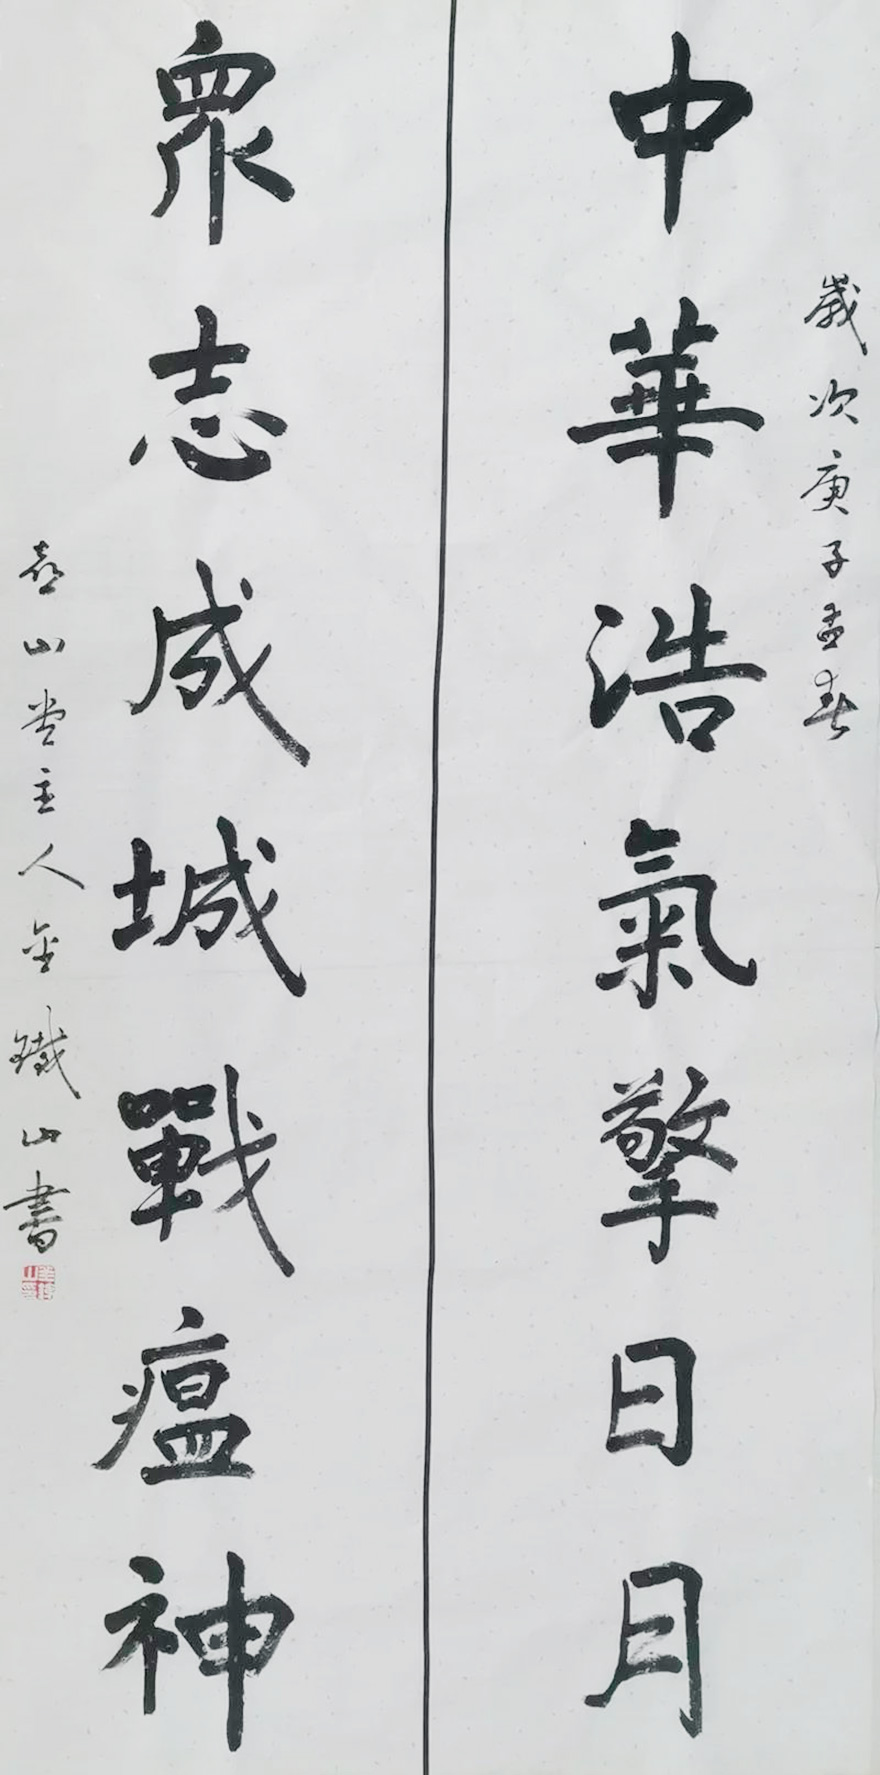 歲次庚子孟春
中華浩氣擎日月
眾志成城戰瘟神
山堂主人金鐵山書